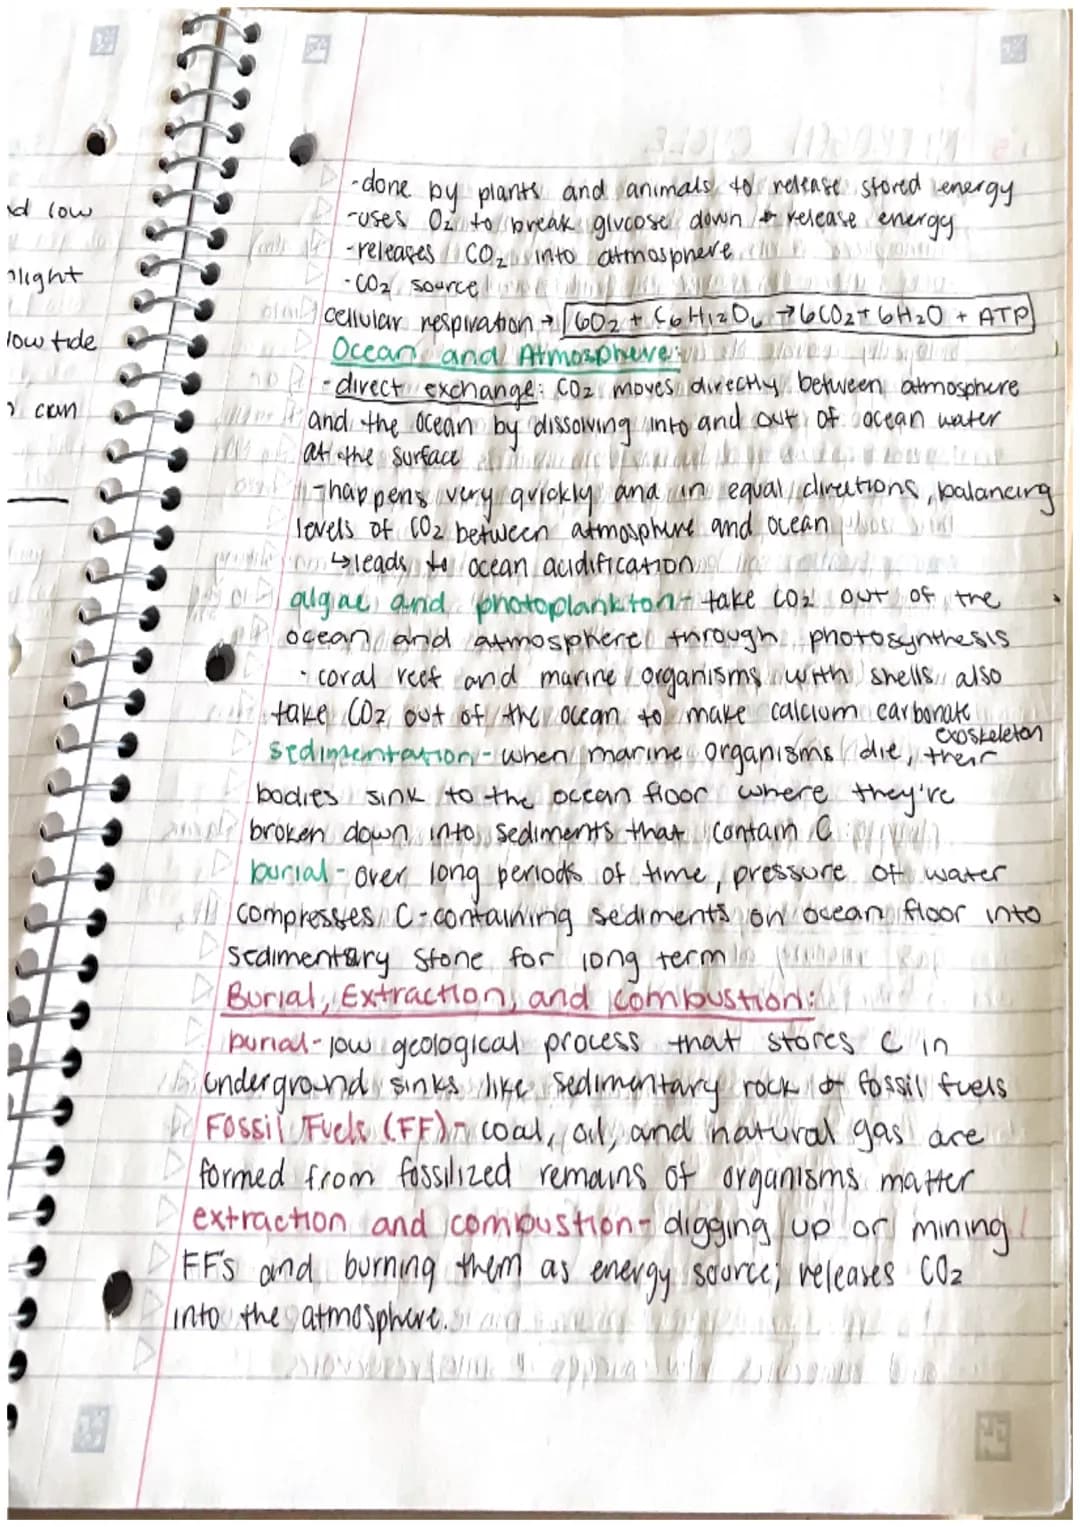 -done by plants and animals to release stored energy
-uses O2 to break glucose down & release energy
-releases CO2 into atmosphere
-CO2 source
cellular respiration → 6O2 + C6H12O6 → 6CO2 + 6H2O + ATP
Ocean and Atmosphere:
-direct exchange: CO2 moves directly between atmosphere
and the ocean by dissolving into and out of ocean water
at the surface
-happens very quickly and in equal directions, balancing
levels of CO2 between atmosphere and ocean
↳leads to ocean acidification
algae and photoplankton- take CO2 out of the
ocean and atmosphere through photosynthesis
· coral reef and marine organisms with shells also
take CO2 out of the ocean to make calcium carbonate
exoskeleton
sedimentation- when marine organisms die, their
bodies sink to the ocean floor where they're
broken down into sediments that contain C
burial- over long periods of time, pressure of water
compresses C-containing sediments on ocean floor into
sedimentary stone for long term
Burial, Extraction, and Combustion:
burial- low geological process that stores C in
underground sinks like sedimentary rock or fossil fuels
Fossil Fuels (FF)- coal, oil, and natural gas are
formed from fossilized remains of organisms matter
extraction and combustion- digging up or mining
FFs and burning them as energy source; releases CO2
into the atmosphere.
low
light
low tide
can